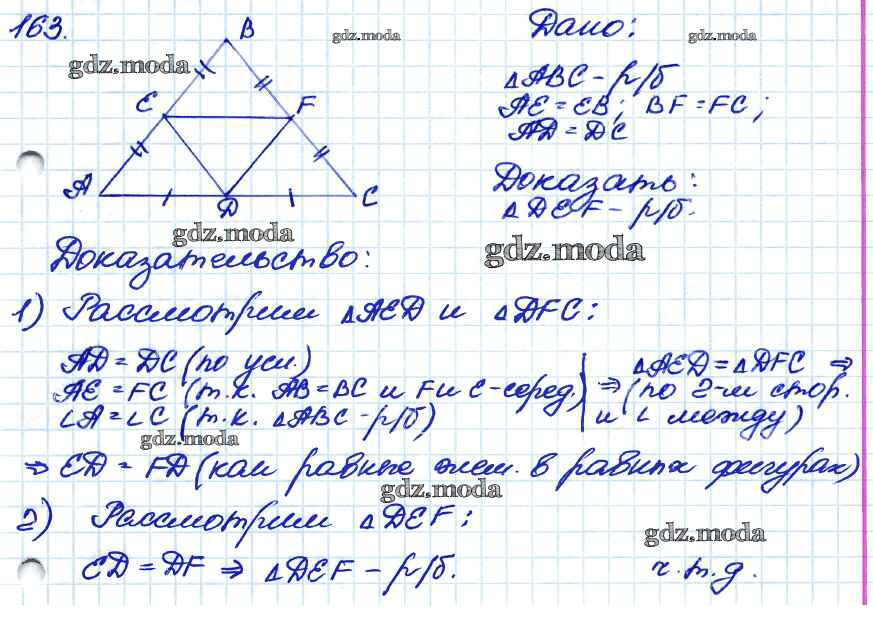 163.
B
gdz.moda
E
F
A
D
C
gdz.moda
gdz.moda
Дано:
gdz.moda
△ABC - р/б
AE = EB; BF = FC;
AD = DC
Доказать:
△DEF - р/б.
gdz.moda
gdz.moda
Доказательство:
1) Рассмотрим △AED и △DFC:
AD = DC (по усл.)
AE = FC (т.к. AB = BC и F и E - серед.)
∠A = ∠C (т.к. △ABC - р/б)
⇒ △AED = △DFC ⇒
(по 2-м стор.
и ∠ между)
gdz.moda
⇒ ED = FD (как равные элем. в равных фигурах)
gdz.moda
2) Рассмотрим △DEF:
gdz.moda
ED = DF ⇒ △DEF - р/б.
ч.т.д.